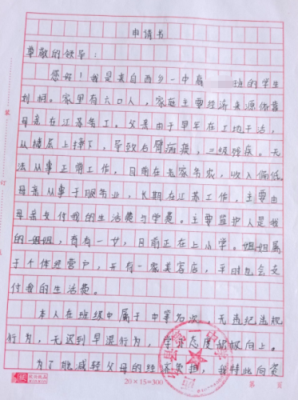 申请书
尊敬的领导：
您好！我是来自西乡一中高 的学生
刘 。家里有六口人，家庭主要经济来源依靠
母亲在江苏务工，父亲由于早年在工地干活，
从楼层上摔下，导致右臂 残，二级残疾，无
法从事正常工作，目前在家务农，收入微低。
母亲从事于服务业，长期在江苏工作，主要由
母亲支付我的生活费与学费。主要监护人是我
的姐姐，育有一女，目前正在上小学。姐姐属
于个体经营户，开有一家美容店，平时也会支
付我的生活费。
本人在班级中属于中等 ，无违纪违规
行为，无迟到早退行为，学习态度积极向上。
为了能减轻父母的经济负担，我特此向贵
20×15=300